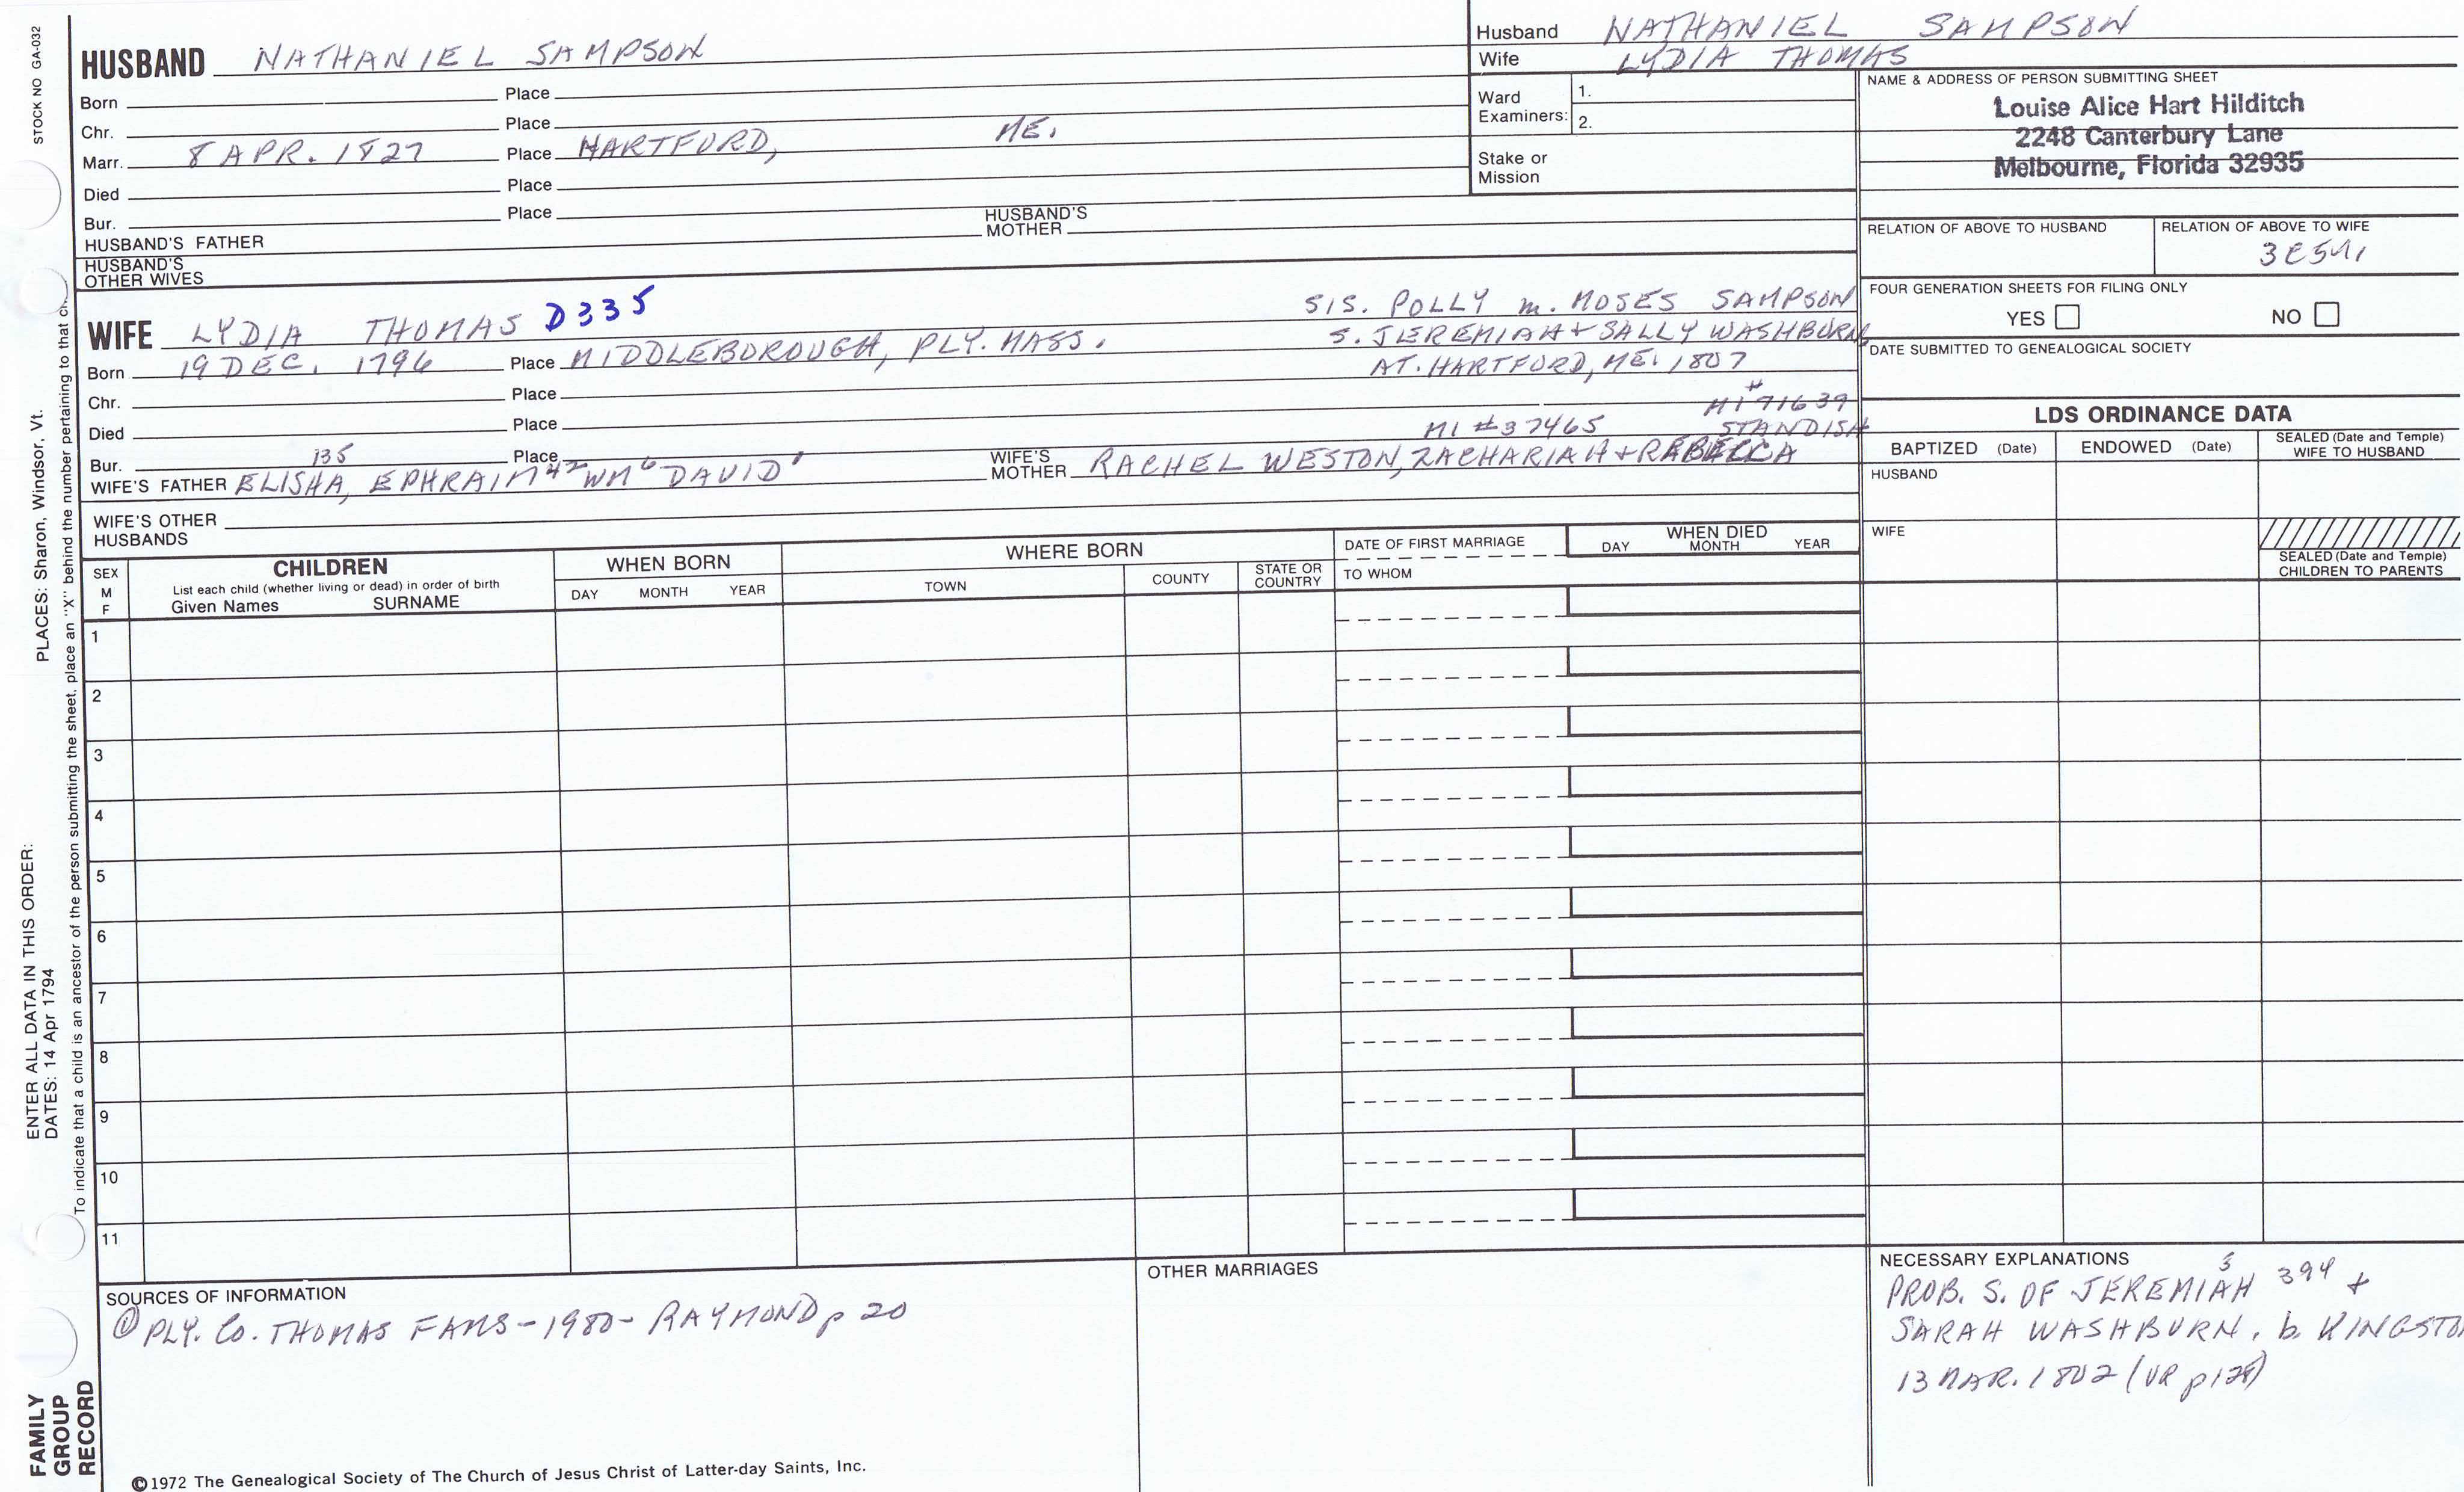 STOCK NO GA-032
PLACES: Sharon, Windsor, Vt.
ENTER ALL DATA IN THIS ORDER:
DATES: 14 Apr 1794
To indicate that a child is an ancestor of the person submitting the sheet, place an "X" behind the number pertaining to that
FAMILY
GROUP
RECORD
HUSBAND NATHANIEL SAMPSON
Born Place
Chr. Place
Marr. 8 APR. 1827 Place HARTFORD, ME.
Died Place
Bur. Place
HUSBAND'S FATHER HUSBAND'S MOTHER
HUSBAND'S
OTHER WIVES
Husband NATHANIEL SAMPSON
Wife LYDIA THOMAS
Ward
Examiners: 1.
2.
Stake or
Mission
NAME & ADDRESS OF PERSON SUBMITTING SHEET
Louise Alice Hart Hilditch
2248 Canterbury Lane
Melbourne, Florida 32935
RELATION OF ABOVE TO HUSBAND RELATION OF ABOVE TO WIFE
FOUR GENERATION SHEETS FOR FILING ONLY
YES NO
DATE SUBMITTED TO GENEALOGICAL SOCIETY
WIFE LYDIA THOMAS D335
SIS. POLLY m. MOSES SAMPSON
S. JEREMIAH + SALLY WASHBURN
AT. HARTFORD, ME. 1807
Born 19 DEC. 1796 Place MIDDLEBOROUGH, PLY. MASS.
Chr. Place
Died Place
MI #37465 # MI 71639
STANDISH
Bur. 135 Place
WIFE'S FATHER ELISHA, EPHRAIM 42 WM 6 DAVID 1 WIFE'S MOTHER RACHEL WESTON, ZACHARIAH + REBECCA
WIFE'S OTHER
HUSBANDS
LDS ORDINANCE DATA
BAPTIZED (Date) ENDOWED (Date) SEALED (Date and Temple) WIFE TO HUSBAND
HUSBAND
WIFE
SEALED (Date and Temple)
CHILDREN TO PARENTS
SEX
M
F
CHILDREN
List each child (whether living or dead) in order of birth
Given Names SURNAME
WHEN BORN
DAY MONTH YEAR
WHERE BORN
TOWN COUNTY STATE OR COUNTRY
DATE OF FIRST MARRIAGE
TO WHOM
WHEN DIED
DAY MONTH YEAR
1
2
3
4
5
6
7
8
9
10
11
SOURCES OF INFORMATION
① PLY. Co. THOMAS FAMS - 1980 - RAYMOND p 20
OTHER MARRIAGES
NECESSARY EXPLANATIONS
PROB. S. OF JEREMIAH 394 +
SARAH WASHBURN, b. KINGSTON
13 MAR. 1802 (VR p128)
©1972 The Genealogical Society of The Church of Jesus Christ of Latter-day Saints, Inc.